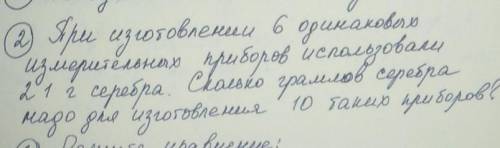 ② При изготовлении 6 одинаковых
измерительных приборов использовали
21 г серебра. Сколько граммов серебра
надо для изготовления 10 таких приборов?
уравнение: